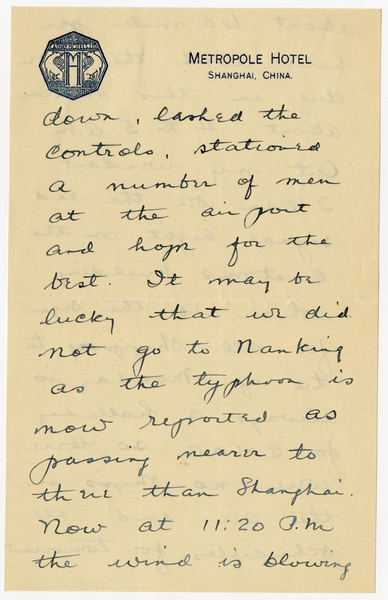 METROPOLE HOTEL
SHANGHAI, CHINA.
down, lashed the
controls, stationed
a number of men
at the air port
and hope for the
best. It may be
lucky that we did
not go to Nanking
as the typhoon is
now reported as
passing nearer to
there than Shanghai.
Now at 11:20 P.M
the wind is blowing